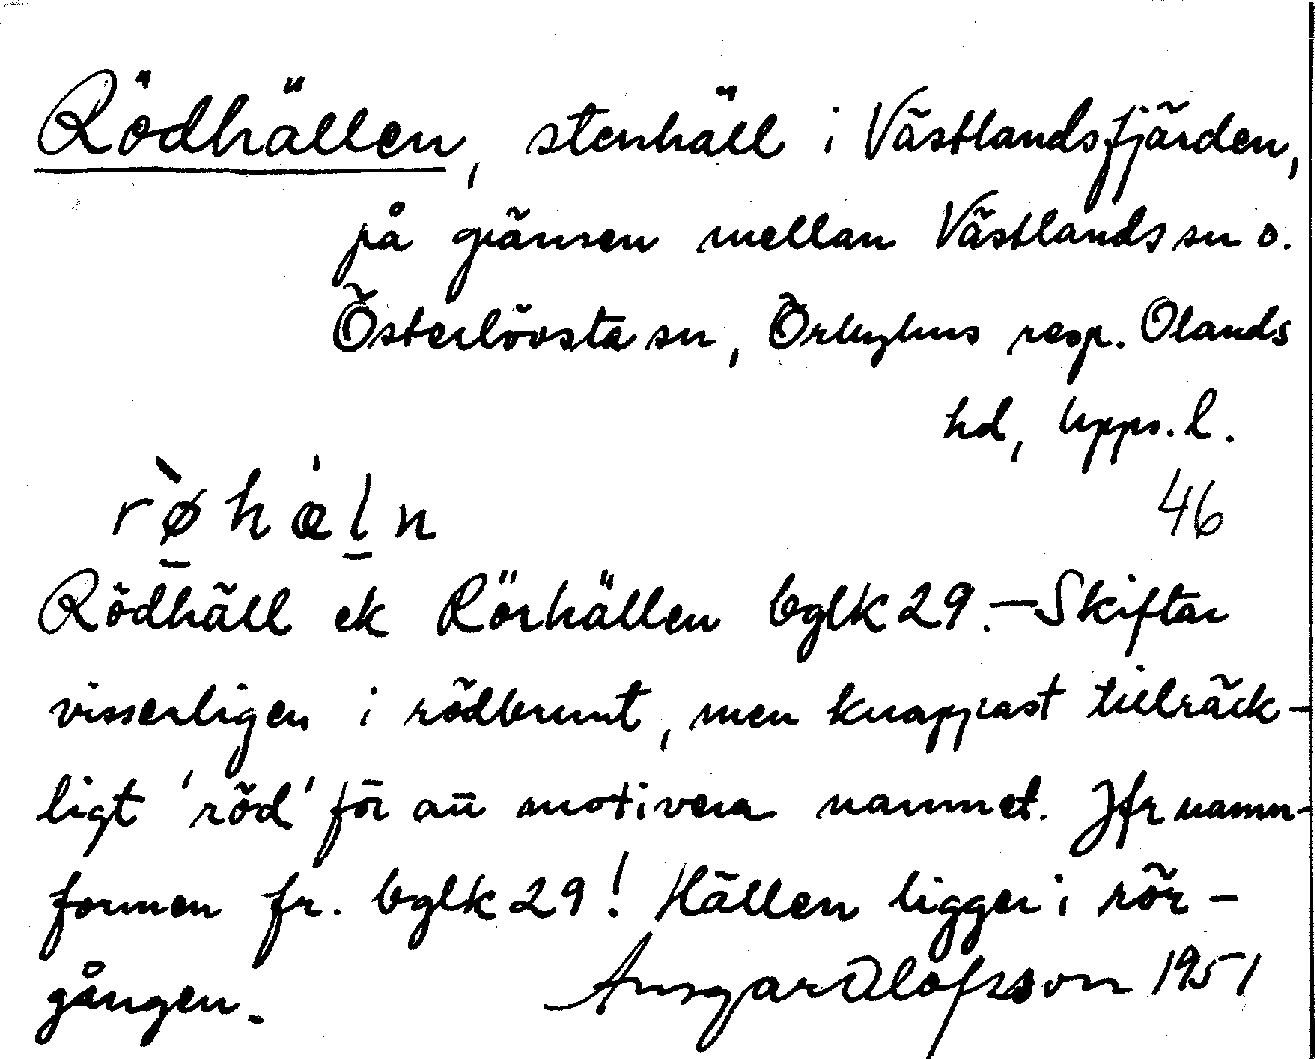 Rödhällen, stenhäll i Västlandsfjärden,
på gränsen mellan Västlands sn o.
Österlövsta sn, Örbyhus resp. Olands
hd, Upps. l.
46
rø̀hàln
Rödhäll ek Rörhällen bglk 29. – Skiftar
visserligen i rödbrunt, men knappast tillräck-
ligt 'röd' för att motivera namnet. Jfr namn-
formen fr. bglk 29! Hällen ligger i rör-
gången.
Ansgar Olofsson 1951